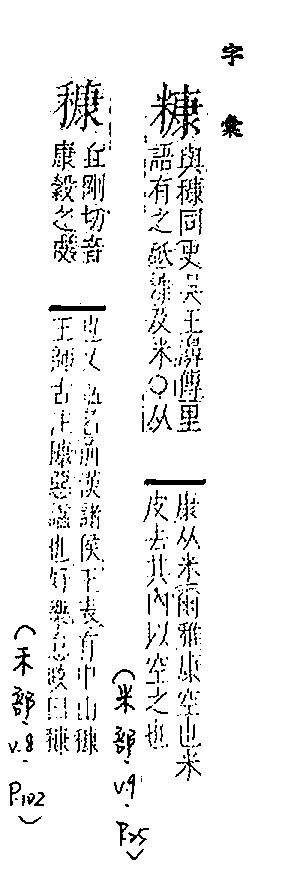 字彙
糠
與穅同史吳王濞傳里
語有之舐穅及米〇从
康从米爾雅康空也米
皮去其內以空之也
（米部．V.9．P.25）
穅
丘剛切音
康穀之皮
也又諡名前漢諸侯王表有中山穅
王師古注穅惡諡也好樂怠政曰穅
（禾部．V.8．P.102）